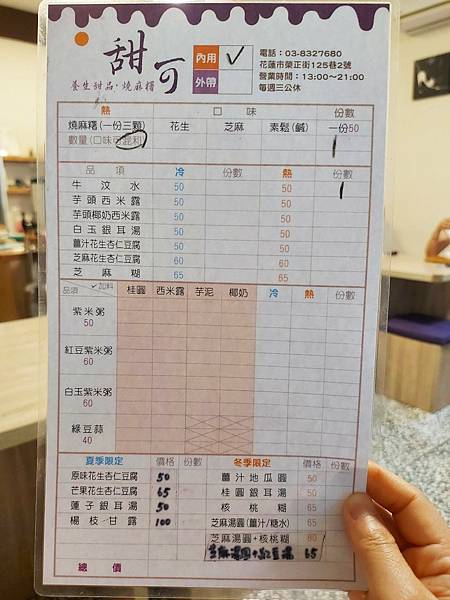 甜可
養生甜品·燒麻糬
內用 ✓
外帶
電話：03-8327680
花蓮市榮正街125巷2號
營業時間：13:00~21:00
每週三公休
熱 口味 份數
燒麻糬(一份三顆) 花生 芝麻 素鬆(鹹) 一份50
數量(口味可混和) 1
品項 冷 份數 熱 份數
牛汶水 50 50 1
芋頭西米露 50 50
芋頭椰奶西米露 50 50
白玉銀耳湯 50 50
薑汁花生杏仁豆腐 50 50
芝麻花生杏仁豆腐 60 60
芝麻糊 65 65
品項 ✓加料 桂圓 西米露 芋泥 椰奶 冷 熱 份數
紫米粥
50
紅豆紫米粥
60
白玉紫米粥
60
綠豆蒜
40
夏季限定 價格 份數 冬季限定 價格 份數
原味花生杏仁豆腐 50 薑汁地瓜圓 50
芒果花生杏仁豆腐 65 桂圓銀耳湯 50
蓮子銀耳湯 50 核桃糊 65
楊枝甘露 100 芝麻湯圓(薑汁/糖水) 65
芝麻湯圓+核桃糊 80
芝麻湯圓+紅豆湯 65
總價